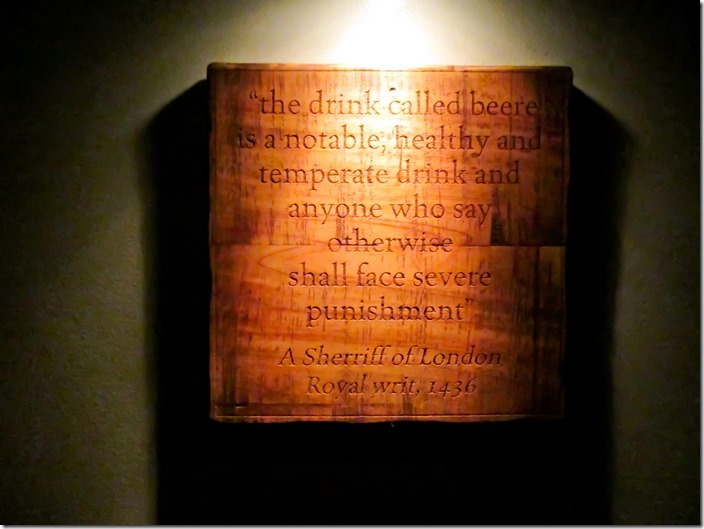 “the drink called beere
is a notable, healthy and
temperate drink and
anyone who say
otherwise
shall face severe
punishment”
A Sherriff of London
Royal writ, 1436